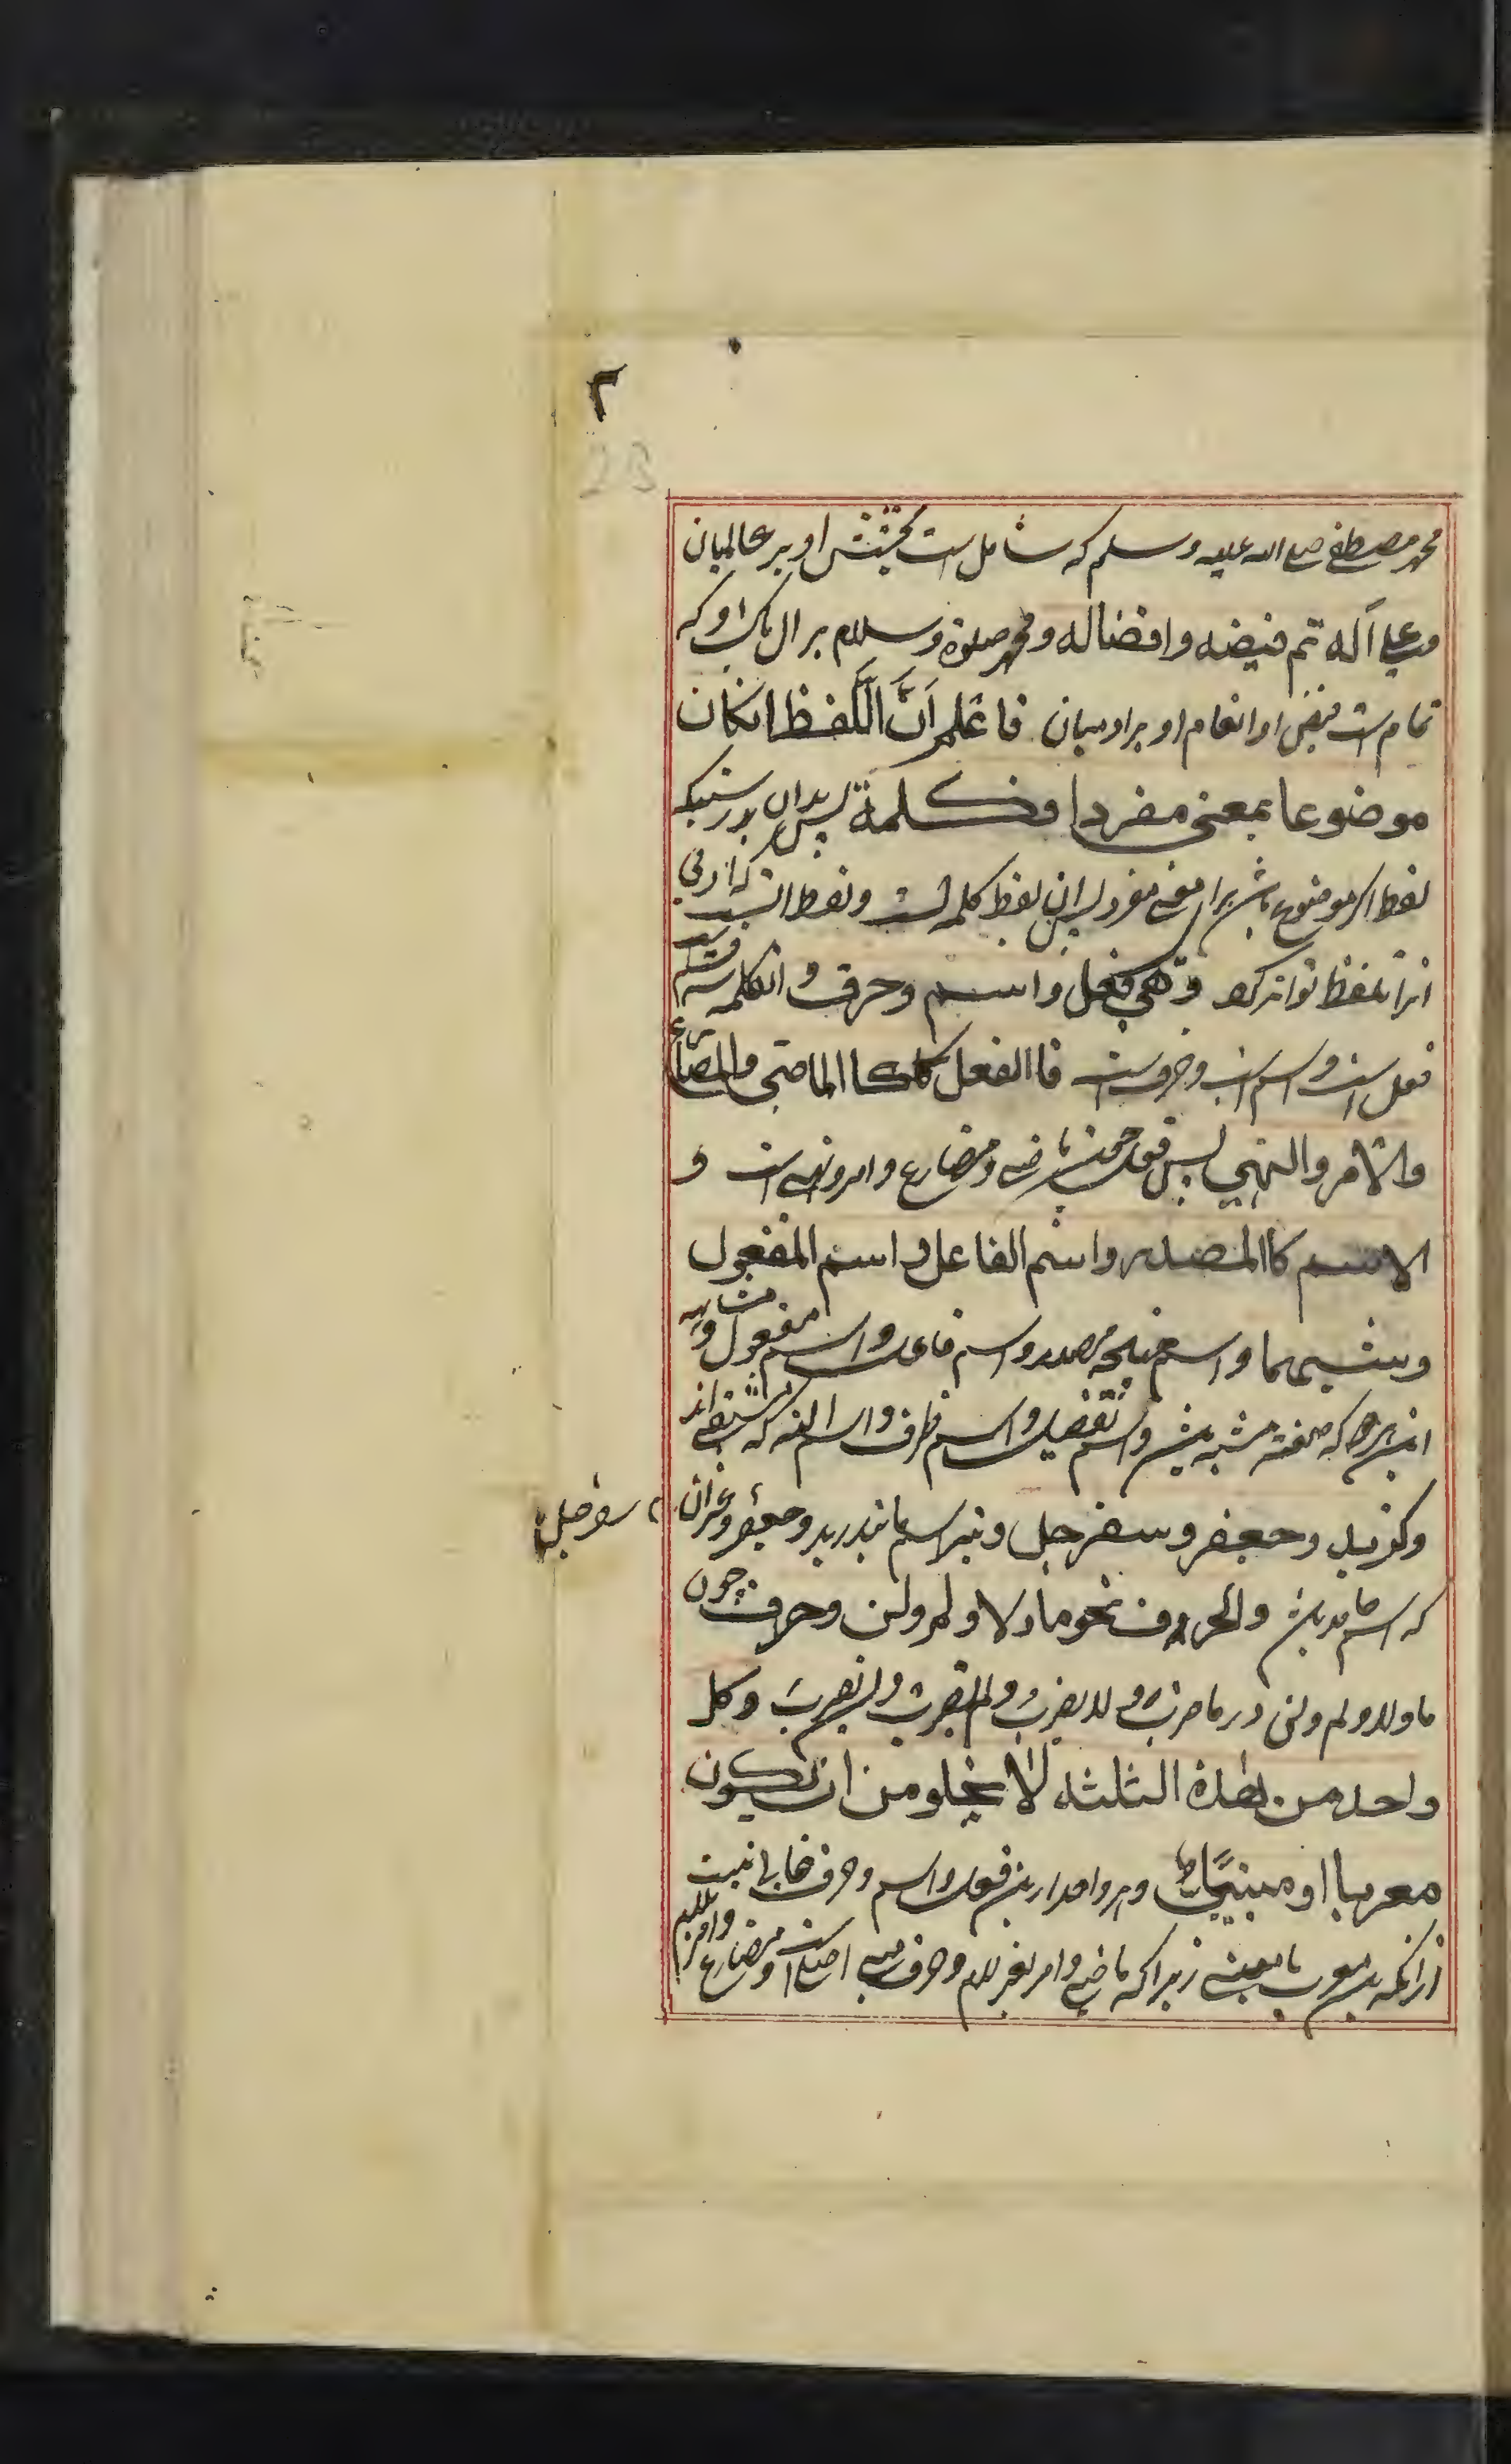 ٢
2B
محمد مصطفی صلی الله علیه وسلم که شامل است بخشش او بر عالمیان
وعلی آله تم فیضه وافضاله ومحمد صلوة وسلام بر ال پاک او که
تمام است فیض او انعام او بر ادمیان فاعلم اَنَّ اللَّفظ انکان
موضوعا بمعنی مفردا فکلمة پس بدان بدرستیکه
لفظ اکر موضوع باشد برای معنی مفرد پس ان لفظ کلمه است ولفظ انست که ادمی
انرا تلفظ تواند کرد وهی فعل واسم وحرف وانکلمه سه قسم است
فعل است واسم است وحرف است فاالفعل کاالماضی والمضارع
والامر والنهی پس فعل ماضی ومضارع وامر ونهی است و
الاسم کاالمصدر واسم الفاعل واسم المفعول
وشبههما واسم مصدر واسم فاعل واسم مفعول ومشابه
این هردو که صفت مشبه باشد واسم تفضیل واسم ظرف واسم اله که مشتق اند
وکزید وجعفر وسفرجل ونیز اسم مانند زید وجعفر وغیر ان
سفرجل
که اسم جامد باشد والحروف نحو ما ولا ولم ولن وحرف چون
ما ولا ولم ولن در ما ضرب ولا یضرب ولم یضرب ولن یضرب وکل
واحد من هذه الثلثة لا یخلو من ان یکون
معربا او مبنیًا وهر واحد ازین فعل واسم وحرف خالی نیست
ازانکه معرب یا مبنی زیراکه ماضی وامر بغیر لام وحرف مبنی اصل است ومضارع وامر بلام